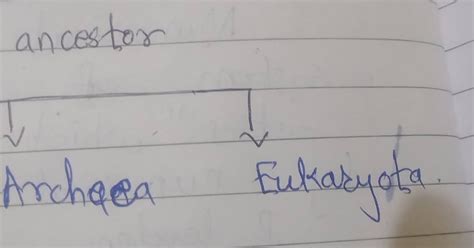 ancestor
Archaea Eukaryota.